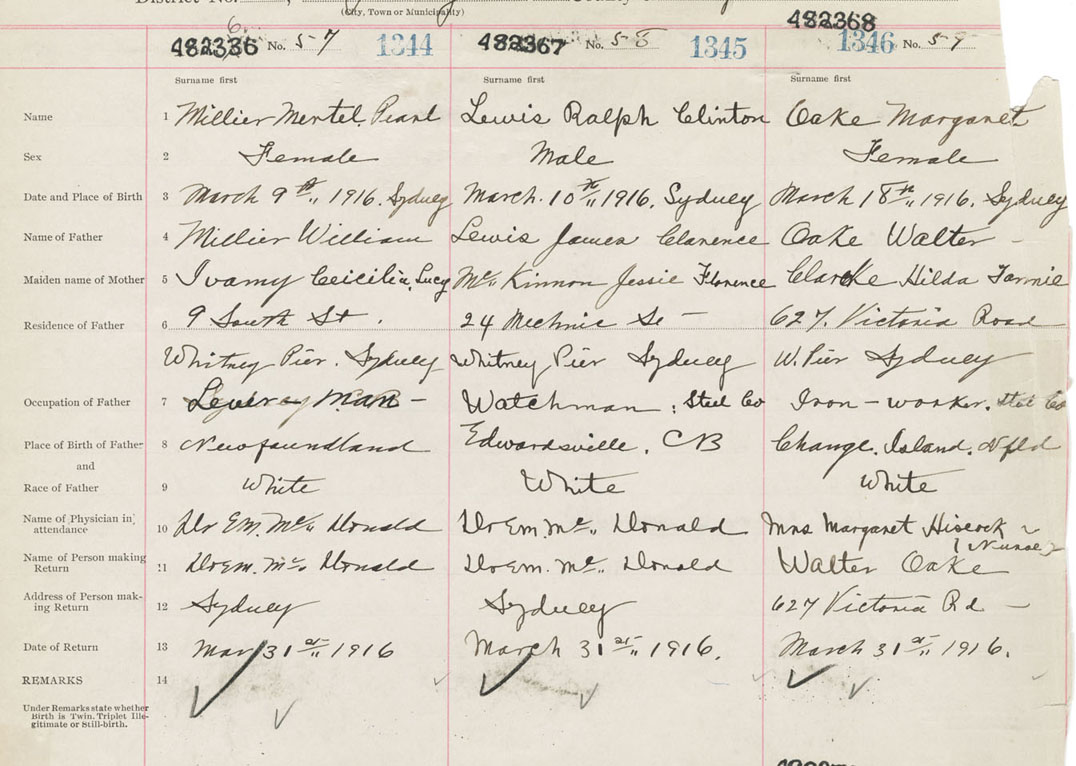 District No.
(City, Town or Municipality)
No. 57 1344 482367 No. 58 1345 482368 1346 No. 59
Surname first Surname first Surname first
Name 1 Millier Mertel Pearl Lewis Ralph Clinton Oake Margaret
Sex 2 Female Male Female
Date and Place of Birth 3 March 9th, 1916. Sydney March 10th, 1916. Sydney March 18th, 1916. Sydney
Name of Father 4 Millier William Lewis James Clarence Oake Walter
Maiden name of Mother 5 Ivamy Ceicilia, Lucy McKinnon Jessie Florence Clarke Hilda
Residence of Father 6 9 South St. 24 Mechnic St 627. Victoria Road
Whitney Pier. Sydney Whitney Pier Sydney W. Pier Sydney
Occupation of Father 7 Man Watchman, Steel Co Iron-worker. Steel Co
Place of Birth of Father 8 Newfoundland Edwardsville. CB Change. Island. Nfld
and
Race of Father 9 White White White
Name of Physician in attendance 10 Dr Em. Mc Donald Dr Em. Mc Donald Mrs Margaret Hiscock
(Nurse)
Name of Person making Return 11 Dr Em. Mc Donald Dr Em. Mc Donald Walter Oake
Address of Person making Return 12 Sydney Sydney 627 Victoria Rd
Date of Return 13 Mar 31st, 1916 March 31st, 1916. March 31st, 1916.
REMARKS 14
Under Remarks state whether
Birth is Twin. Triplet Ille-
gitimate or Still-birth.